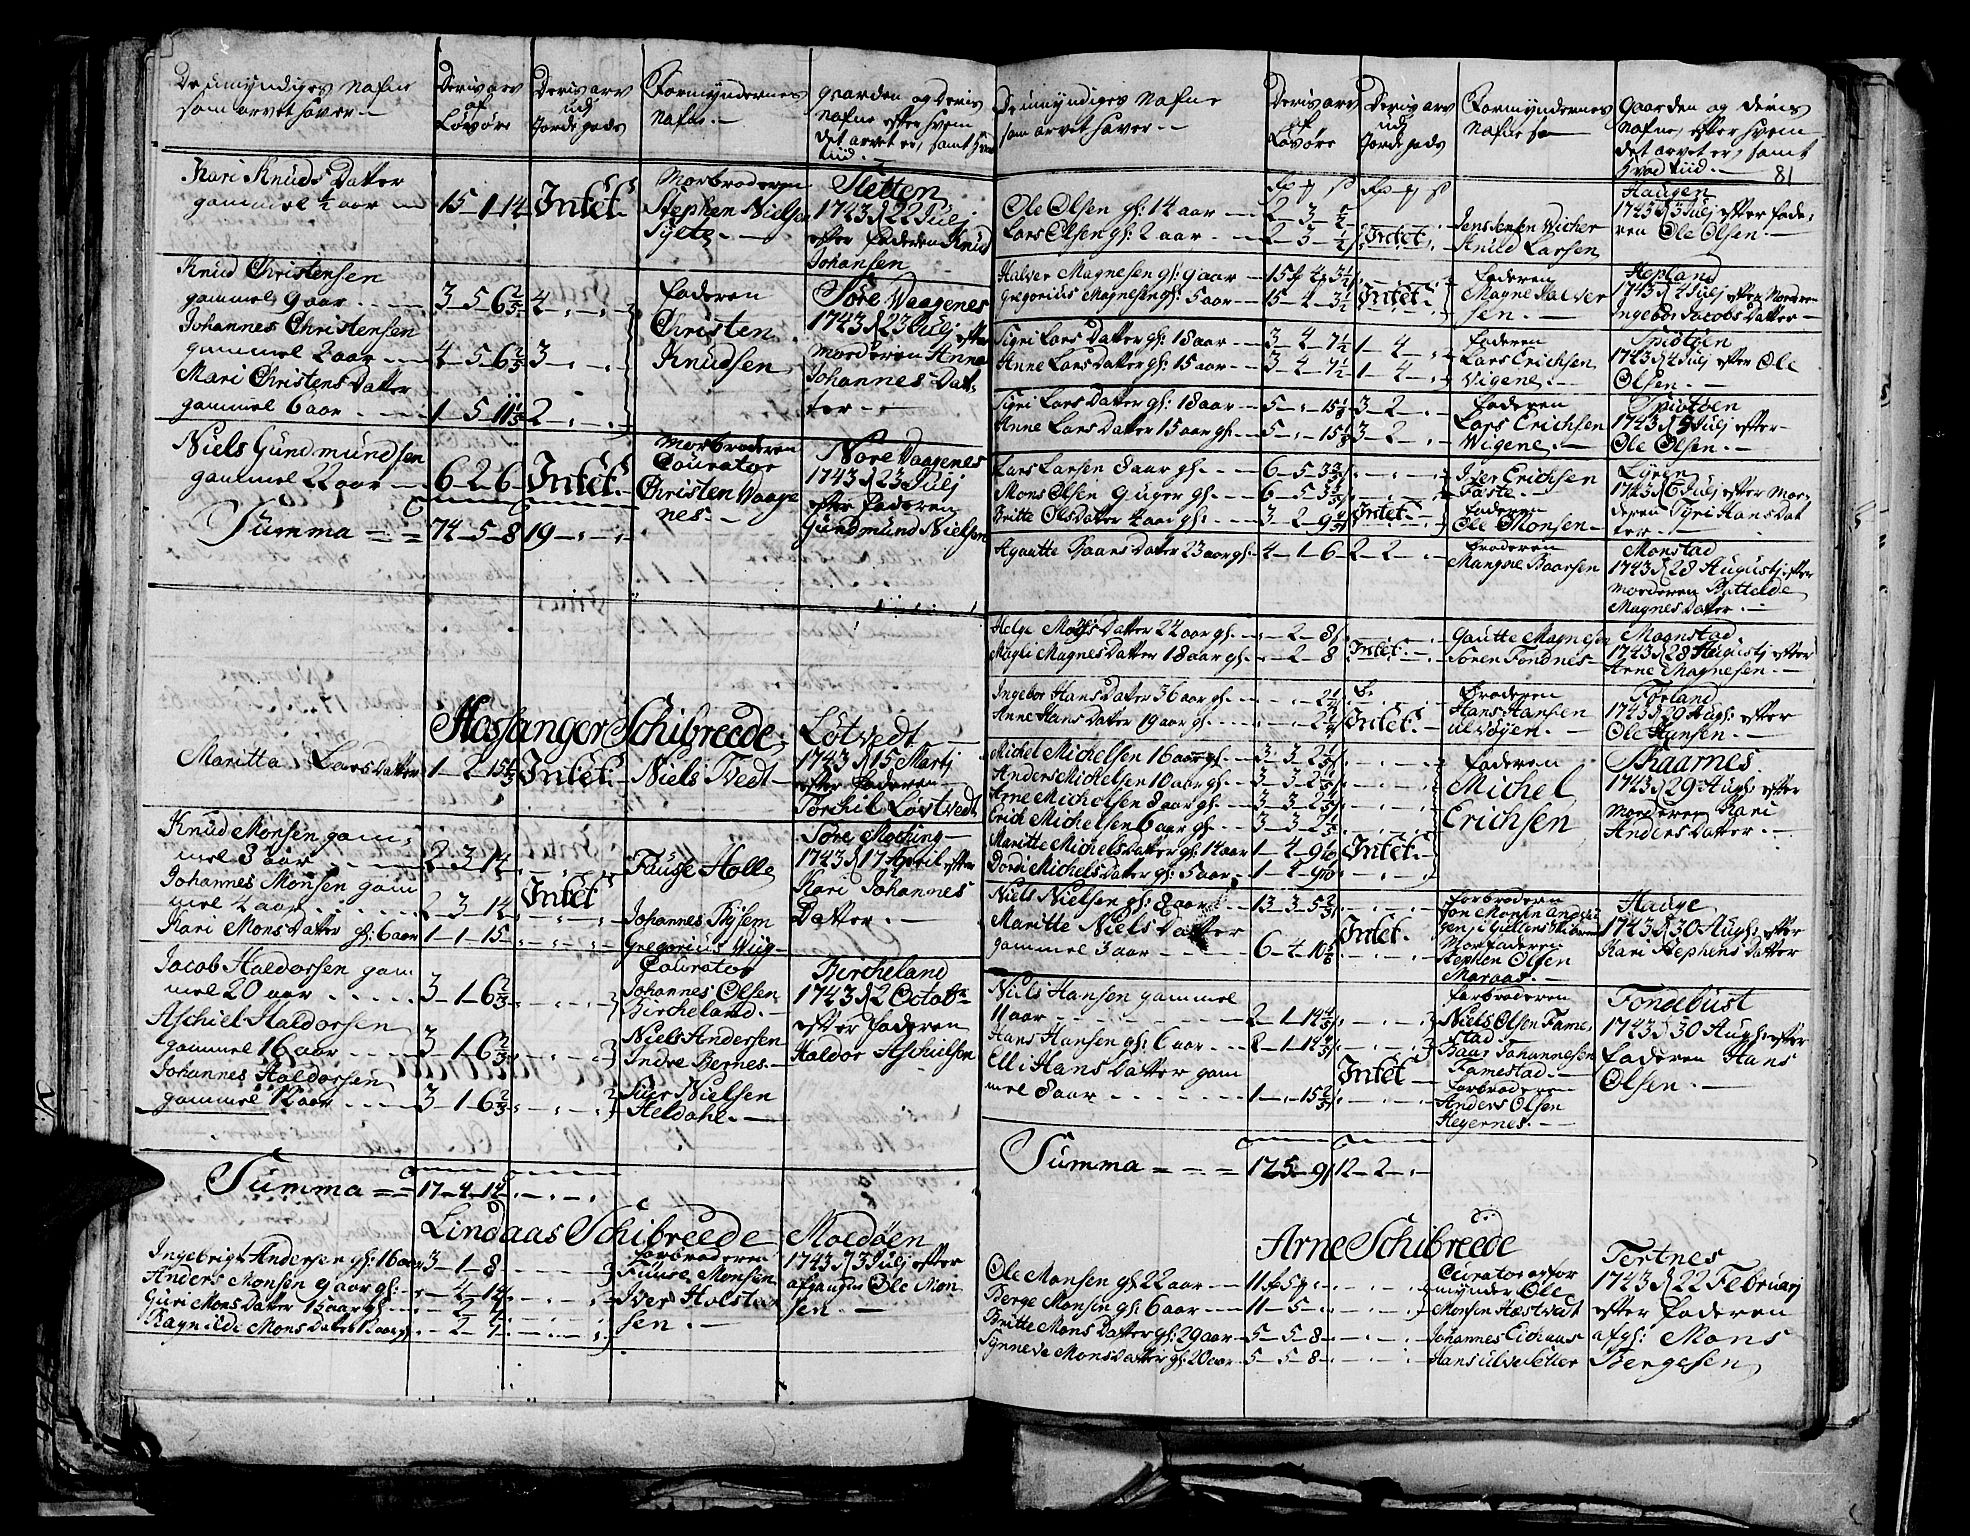 De umyndiges Nafne
som arvet haver
Deris arv
af
Løsøre
Deris arv
udj
Jordegods
Formyndernes
Nafn
gaarden og Deris
Nafne efter hvem
det arvet er, samt hvad
tiid.
Kari Knuds Datter
gammel ½ aar
15 - 1 - 14
Intet
Morbroderen
Stephen Nielsen
Sletten
1743 d 22 Julj
efter faderen Knud
Johansen
Knud Christensen
gammel 9 aar
3 - 5 - 6 2/5
4
Johannes Christensen
gammel 2 aar
4 - 5 - 6 2/5
3
Mari Christens Datter
gammel 6 aar
1 - 5 - 11 1/5
2
faderen
Christen
Knudsen
Søre Waagenes
1743 d 23 Julj efter
Moderen Anna
Johannes Dat-
ter
Niels Gundmundsen
gammel 22 aar
6 - 2 - 6
Intet
Morbroderen
Courator
Christen Waage
nes
Nore Waagenes
1743 d 23 Julj
efter faderen
Gundmund Nielsen
Summa == 74 - 5 - 8 19
Hossanger Schibreede
Maritta Larsdatter
1 - 2 - 15 1/3
Intet
Niels Tvedt
Løtvedt
1743 d 15 Martj
efter faderen
Torchil Løstvedt
Knud Monsen gam
mel 8 aar
2 - 3 - 14
Johannes Monsen gam
mel 4 aar
2 - 3 - 14
Kari Mons Datter gl: 6 aar
1 - 1 - 15
Intet
Fause Holle
Johannes Bysem
Gregorius Wiig
Søre Moching
1743 d 17 April efter
Kari Johannes
Datter
Jacob Haldorsen gam
mel 20 aar
3 - 1 - 6 2/3
Aschiel Haldorsen
gammel 16 aar
3 - 1 - 6 2/3
Johannes Haldorsen
gammel 12 aar
3 - 1 - 6 2/3
Courator
Johannes Olsen
Bircheland
Niels Andersen
Indre Bernes
Siur Nielsen
Heldahl
Bircheland
1743 d 2 Octobr
efter faderen
Haldor Aschielsen
Summa == 17 - 4 - 14
Lindaas Schibreede
Ingebrigt Andersen gl: 16 aar
3 - 1 - 8
Anders Monsen 9 aar gl:
4 - 14
Guri Mons Datter 15 aar gl
2 - 7
Ragnilde Mons Datter 12 aar gl
2 - 7
farbroderen
Fause Monsen
Iver Holsten
sen
Moldøen
1743 d 3 Julj efter
afgangne Ole Mon
sen
De umyndiges Nafne
som arvet haver
Deris arv
af
Løsøre
Deris arv
udj
Jordegods
Formyndernes
Nafne
Gaarden og Deris
Nafne, efter hvem
det arvet er, samt
hvad tiid.
81
Ole Olsen gl: 14 aar
2 - 3 - ½
Lars Olsen gl: 2 aar
2 - 3 - ½
Intet
Jens Jensen Wicher
Knud Larsen
Haugen
1743 d 3 Julj efter fade-
ren Ole Olsen
Halver Magnesen gl: 9 aar
15 - 4 - 3½
Gregorius Magnesen gl: 5 aar
15 - 4 - 3½
Intet
faderen
Magne Halver
sen
Hepland
1743 d 4 Julj efter Moderen
Ingebor Jacobs Datter
Sigri Lars Datter gl: 18 aar
3 - 4 - 7½
1 - 4
Anne Lars datter gl: 15 aar
3 - 4 - 7½
1 - 4
faderen
Lars Erichsen
Vigene
Spiøtøen
1743 d 4 Julj efter Ole
Olsen
Sigri Lars Datter gl: 18 aar
5 - - 15 1/3
3 - 2
Anne Lars Datter 15 aar gl:
5 - - 15 1/3
3 - 2
faderen
Lars Erichsen
Wigene
Spiøtøen
1743 d 5 Julj efter
Ole Olsen
Lars Larsen 8 aar gl:
6 - 5 - 3
Mons Olsen 9 uger gl:
6 - 5 - 3
Britte Olsdatter 4 aar gl:
3 - 2 - 9
Intet
Iver Erichsen
Faste
faderen
Ole Monsen
Lyren
1743 d 6 Julj efter Mo-
deren Syri Hans Dat
ter
Agautte Baars Datter 23 aar gl:
4 - 1 - 6
2 - 2
Broderen
Mangne Baarsen
Monstad
1743 d 28 Augustj efter
Moderen Buttelde
Magnes Datter
Helge Mons Datter 24 aar gl:
2 - 8
Magli Magnes Datter 18 aar gl:
2 - 8
Intet
Gautte Magnesen
Søren Fondnes
Mognstad
1743 d 28 Augustj efter
Arne Magnesen
Ingebor Hans Datter 36 aar gl:
2¼
Anne Hans Datter 19 aar gl:
2¼
Intet
Broderen
Hans Hansen
Ulvøyen
Førland
1743 d 29 Aug: efter
Ole Hansen
Michel Michelsen 16 aar gl
3 - 3 - 2 1/5
Anders Michelsen 10 aar gl:
3 - 3 - 2 1/5
Arne Michelsen 8 aar gl:
3 - 3 - 2 1/5
Erich Michelsen 6 aar gl:
3 - 3 - 2 1/5
Maritte Michels Datter gl: 14 aar
1 - 4 - 9
Dordi Michels Datter gl: 5 aar
1 - 4 - 9
Intet
faderen
Michel
Erichsen
Baarnes
1743 d 29 Aug: efter
Moderen Kari
Anders Datter
Niels Nielsen gl: 8 aar
13 - 3 - 5
Maritte Niels Datter
gammel 3 aar
6 - 4 - 10
Intet
farbroderen
Jon Monsen
Morfaderen
Stephen Olsen
Maraas
Hauge
1743 d 30 Aug: efter
Kari Stephens Datter
Niels Hansen gammel
11 aar
2 - 1 - 14
Hans Hansen gl: 6 aar
2 - 1 - 14
Elli Hans Datter gam
mel 8 aar
1 - - 15
Intet
farbroderen
Niels Olsen Fame-
stad
Baar Johannesen
Famestad
farbroderen
Anders Olsen
Hegernes
Fondebust
1743 d 30 Aug: efter
faderen Hans
Olsen
Summa == 125 - 9 12 - 2
Arne Schibreede
Ole Monsen gl: 22 aar
11 - 5
Berge Monsen gl: 6 aar
11 - 5
Britte Mons Datter gl: 29 aar
5 - 5 - 8
Synneve Mons datter gl: 20 aar
5 - 5 - 8
Curator og for
mynder Ole
Monsen Hæstvedt
Johannes Eichaas
Hans Ulvesetter
Tertnes
1743 d 22 Februarj
efter faderen
afg: Mons
Bergesen